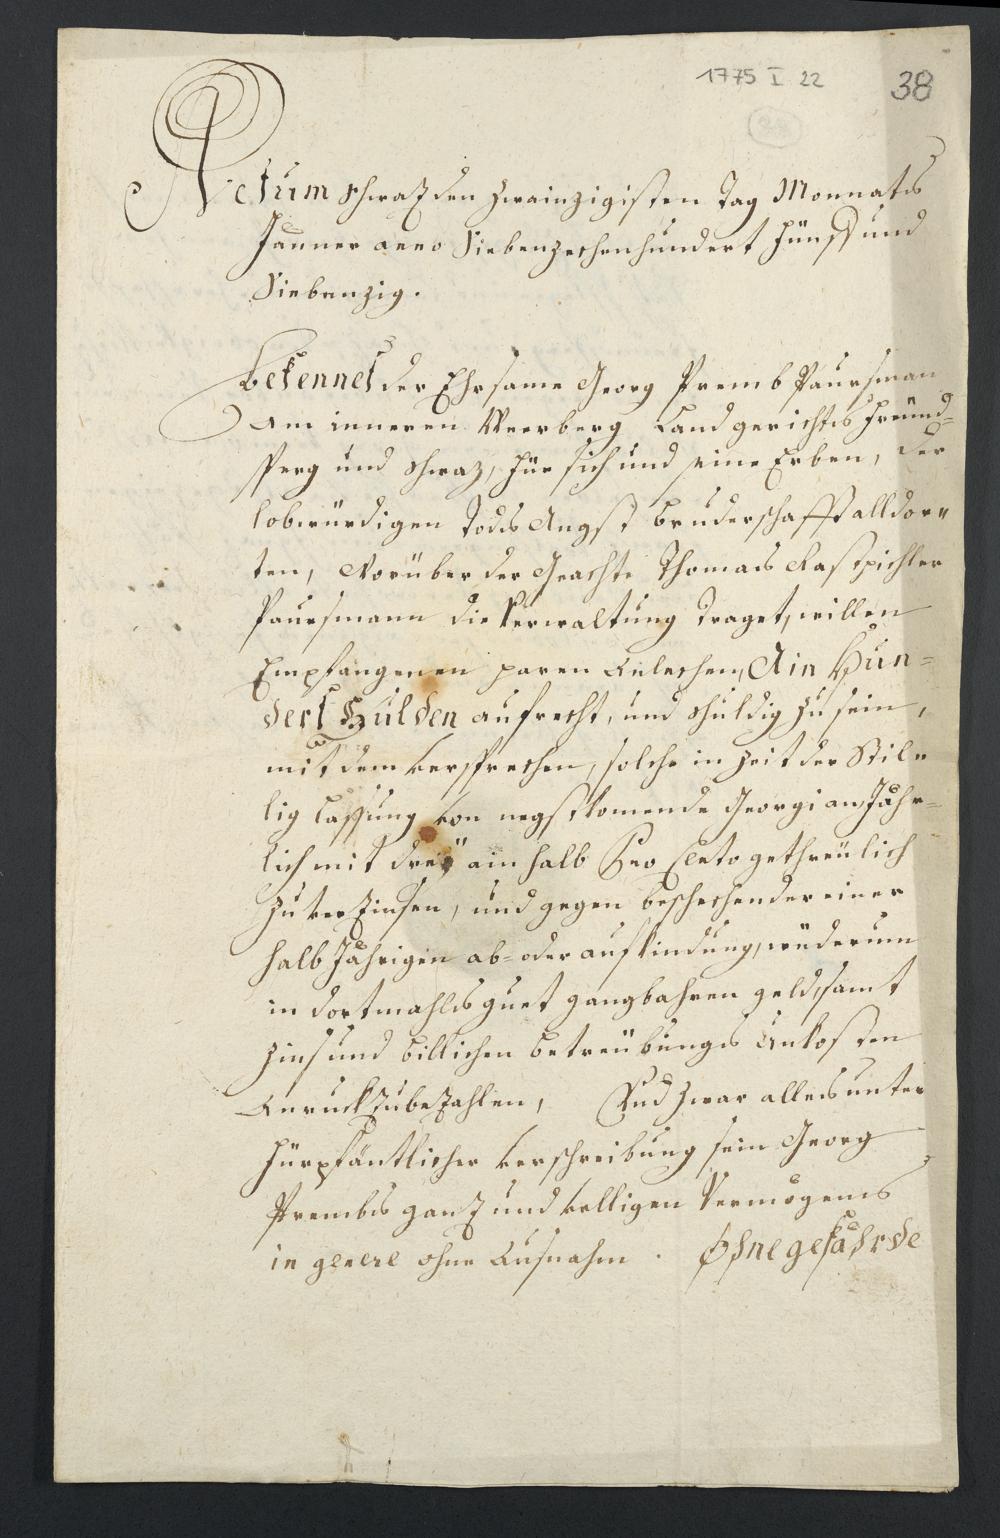 1775 I 22
38
Actum Schwaz den zwainzigisten Tag Monnats
Jänner anno Siebenzechenhundert Fünff und
Siebenzig.
Bekennet der Ehrsame Georg Premb Paursman
am inneren Weerberg Landgerichts Freünd=
sperg und Schwaz, für sich und seine Erben, der
lobwürdigen Tods Angst Bruderschafft alldor=
ten, Worüber der Geachte Thomas Rastpichler
Paursmann die Verwaltung traget, willen
Empfangenen paren Anlechen, Ain Hun=
dert Gulden aufrecht, und schuldig zu sein,
mit dem Versprechen, solche in Zeit der Stil=
lig Lassung von negstkomende Georgi an, Jähr=
lich mit dreÿ ain halb Pro Cento gethreülich
zu verzinsen, und gegen beschechender einer
halb Jährigen ab= oder aufkindung, wüderum
in dortmahls guet gangbahren geld, samt
Zins und billichen Betreübungs Unkosten
zuruckzubezahlen, Und zwar alles unter
Fürpfäntlicher Verschreibung sein Georg
Prembs ganz und völligen Vermögens
in genere ohne Ausnahm. Ohne gefährde